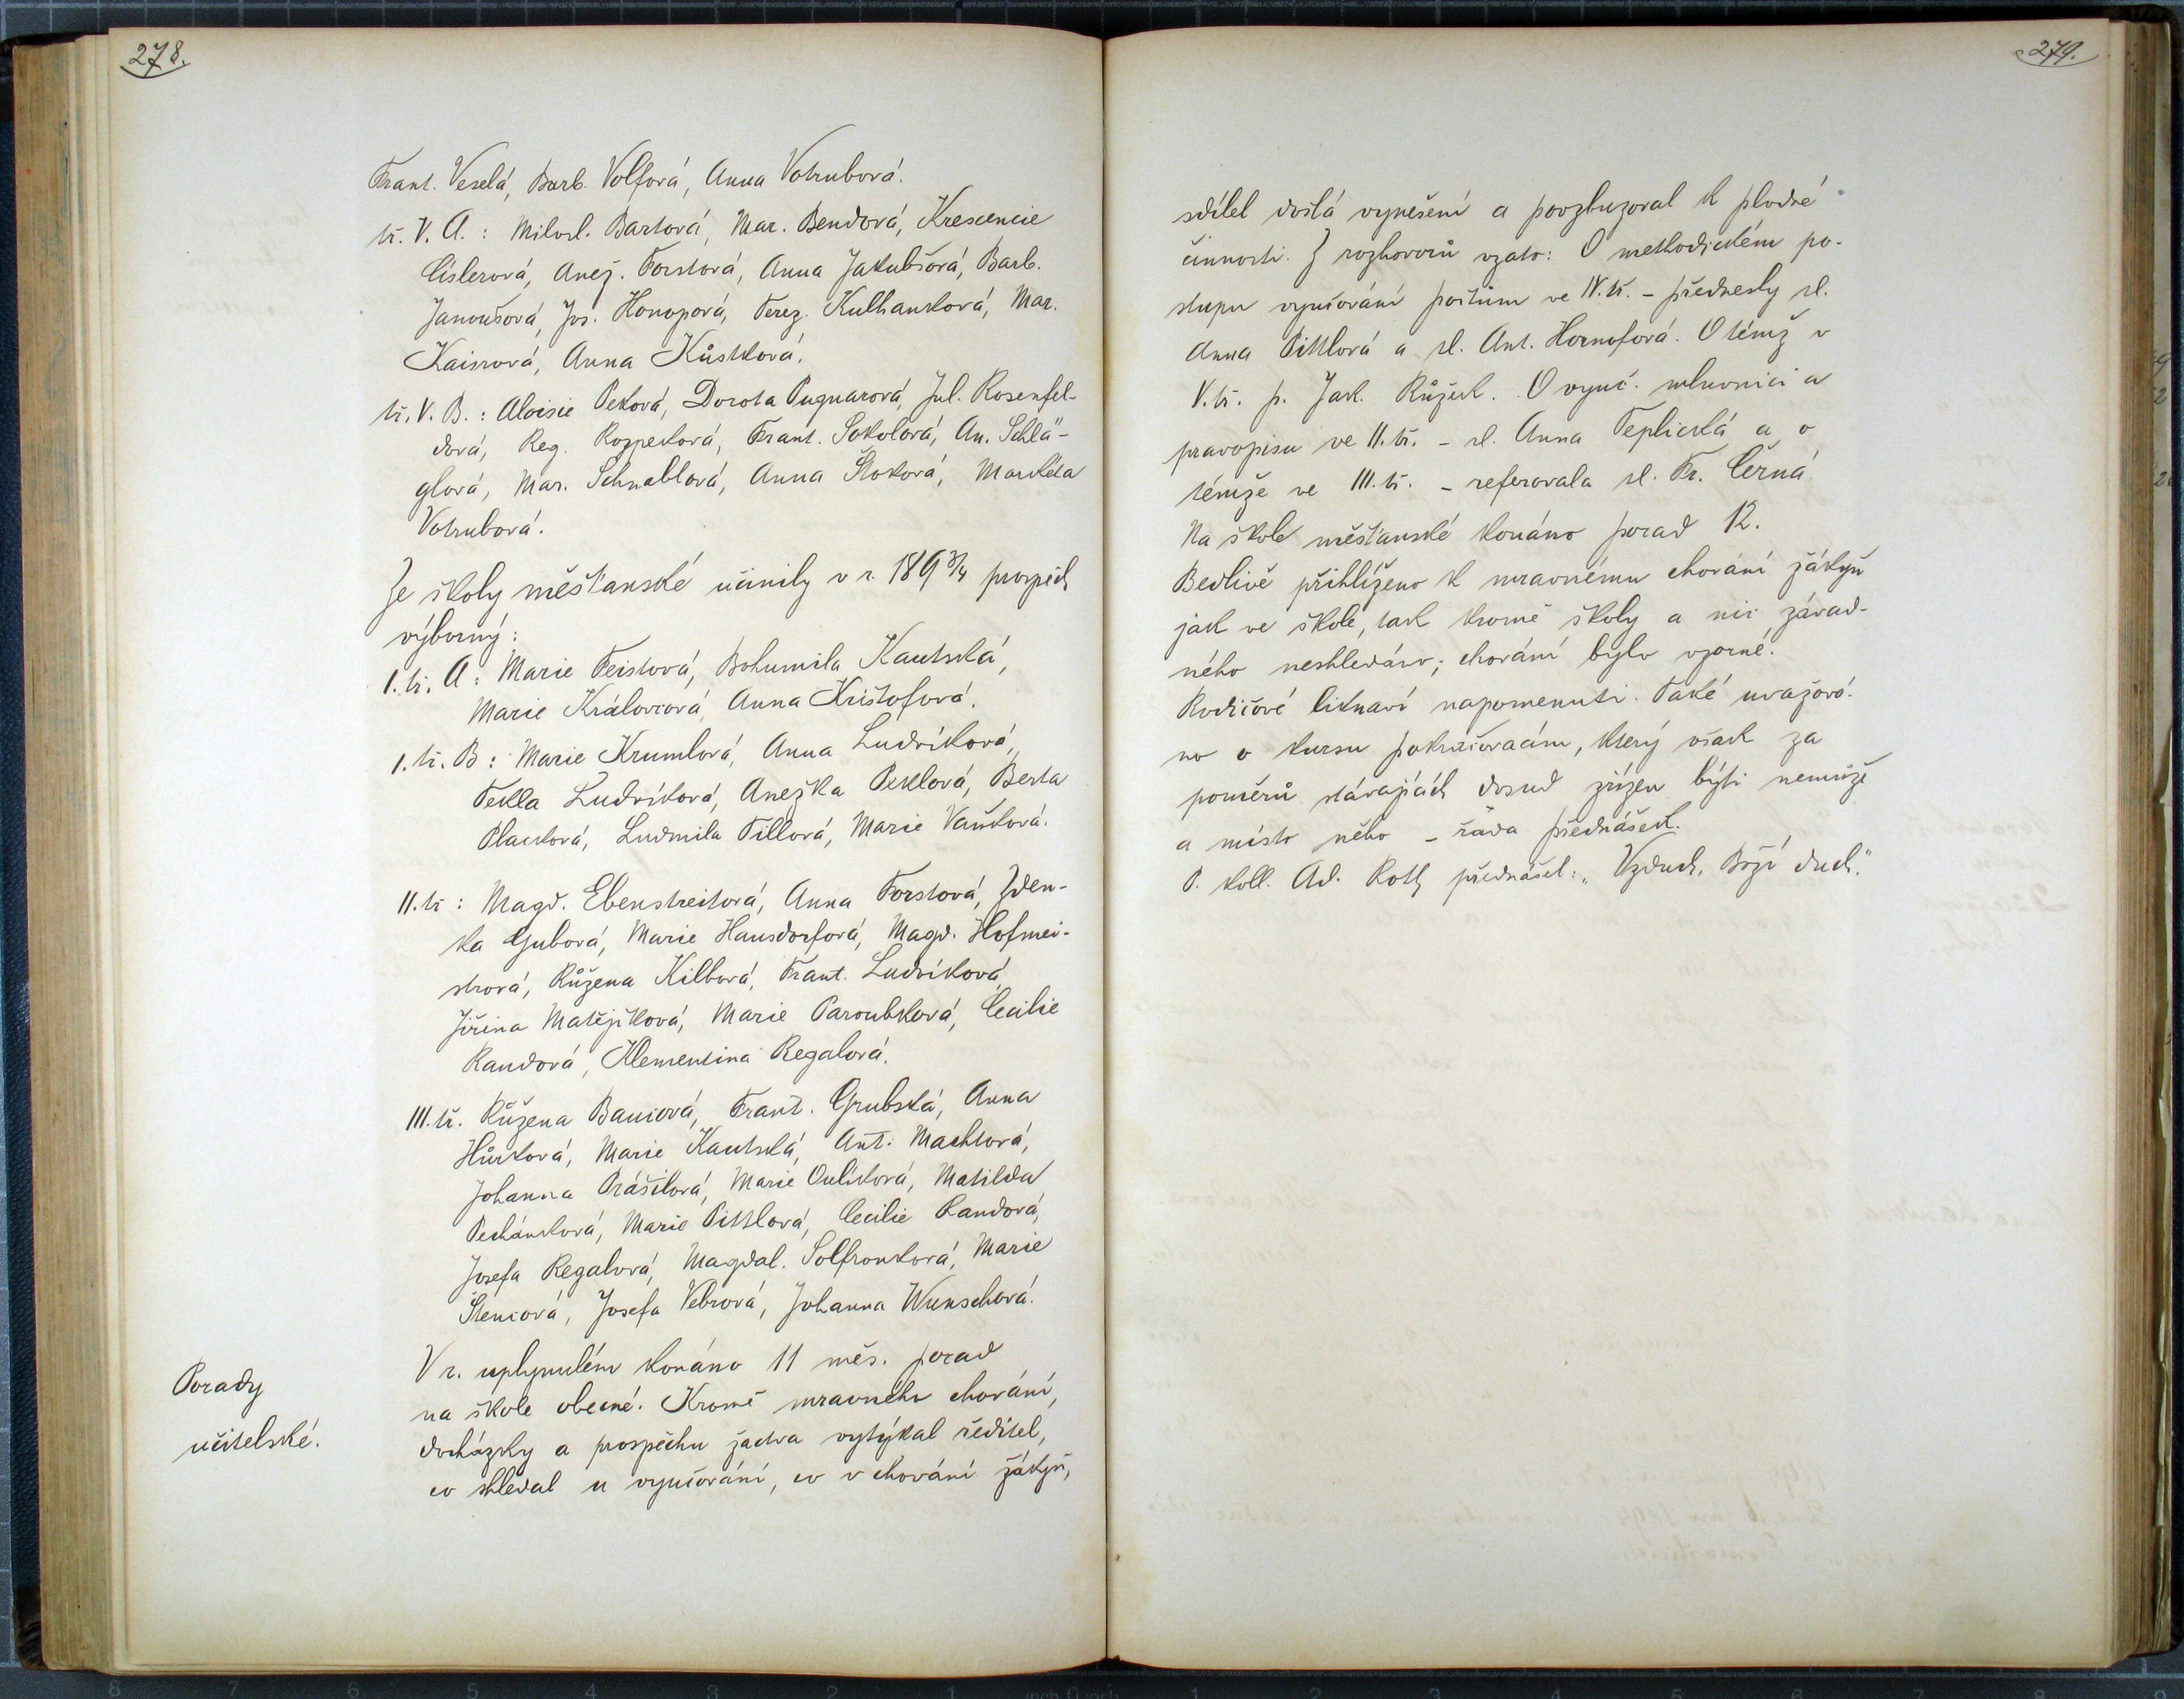 278.
Frant. Veselá, Barb. Volfová, Anna Votrubová.
tř. V. A.: Milosl. Bartová, Mar. Bendová, Krescencie
Císlerová, Anež. Forstová, Anna Jakubšová, Barb.
Janoušová, Jos. Konopová, Terez. Kulhanková, Mar.
Kaisrová, Anna Kůstková.
tř. V. B.: Aloisie Peková, Dorota Pugnarová, Jul. Rosenfel-
dová, Reg. Rozpecková, Frant. Sokolová, An. Schlä-
glová, Mar. Schnablová, Anna Štoková, Markéta
Votrubová.
Ze školy měšťanské učinily v r. 189 3/4 prospěch
výborný:
I. tř. A: Marie Feistová, Bohumila Kautská,
Marie Královcová, Anna Krištofová.
I. tř. B: Marie Krumlová, Anna Ludvíková,
Tekla Ludvíková, Anežka Peklová, Berta
Placková, Ludmila Tillová, Marie Vaňková.
II. tř: Magd. Ebenstreitová, Anna Forstová, Zden-
ka Gubová, Marie Hausdorfová, Magd. Hofmei-
strová, Růžena Kilbová, Frant. Ludvíková,
Jiřina Matějčková, Marie Paroubková, Cecilie
Randová, Klementina Regalová.
III. tř. Růžena Baucová, Frant. Grubská, Anna
Hůrková, Marie Kautská, Ant. Machtová,
Johanna Prášilová, Marie Oulíková, Matilda
Pechánková, Marie Pittlová, Cecilie Randová,
Josefa Regalová, Magdal. Solfronková, Marie
Štencová, Josefa Vebrová, Johanna Wunschová.
Porady
učitelské.
V r. uplynulém konáno 11 měs. porad
na škole obecné. Kromě mravného chování,
docházky a prospěchu žactva vytýkal ředitel,
co shledal u vyučování, co v chování žákyň,
279.
sdílel došlá vynešení a povzbuzoval k plodné
činnosti. Z rozhovorů vzato: O methodickém po-
stupu vyučování počtům ve IV. tř. - přednesly sl.
Anna Pittlová a sl. Ant. Hornofová. O témž v
V. tř. p. Jak. Růžek. O vyuč. mluvnici a
pravopisu ve II. tř. - sl. Anna Teplická a o
témže ve III. tř. - referovala sl. Fr. Černá.
Na škole měšťanské konáno porad 12.
Bedlivě přihlíženo k mravnému chování žákyň
jak ve škole, tak kromě školy a nic závad-
ného neshledáno; chování bylo vzorné.
Rodičové liknaví napomenuti. Také uvažová-
no o kursu pokračovacím, který však za
poměrů stávajících dosud zřízen býti nemůže
a místo něho - řada přednášek.
P. koll. Ad. Roth přednášel: „Vzduch, Boží duch."